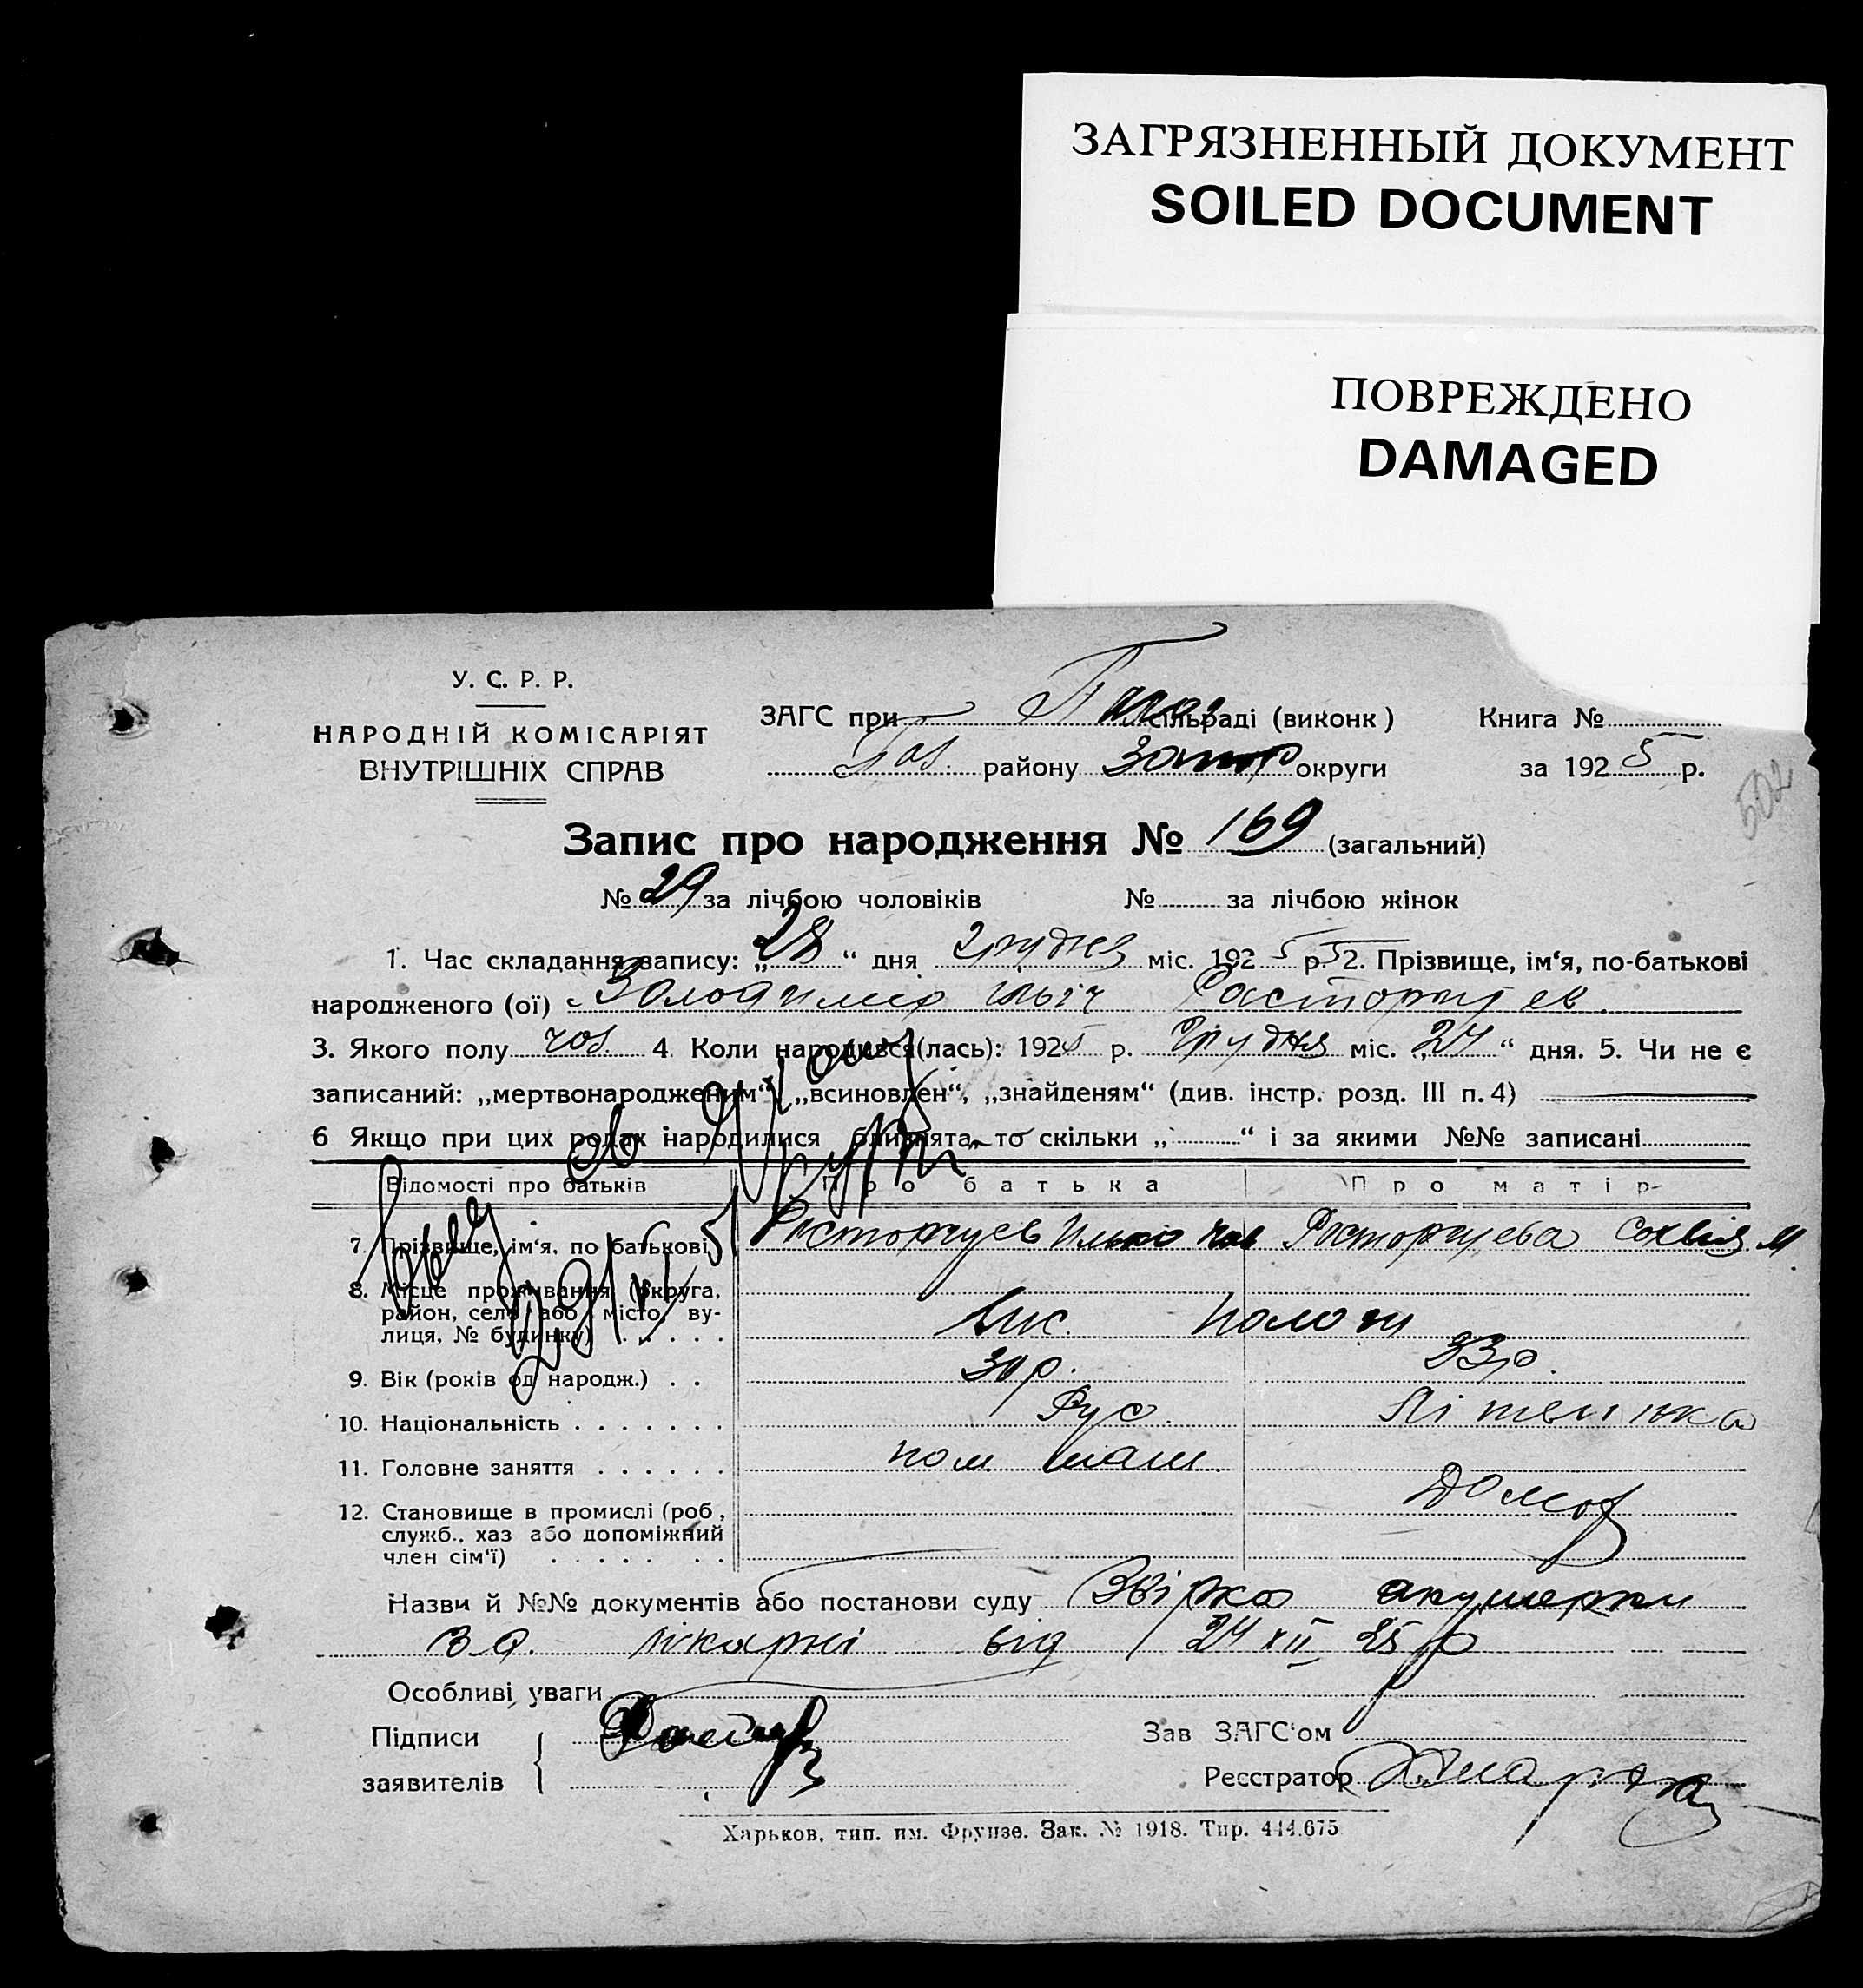 ЗАГРЯЗНЕННЫЙ ДОКУМЕНТ
SOILED DOCUMENT
ПОВРЕЖДЕНО
DAMAGED
У. С. Р. Р.
НАРОДНІЙ КОМІСАРІЯТ
ВНУТРІШНІХ СПРАВ
ЗАГС при сільраді (виконк)
району Запор округи
Книга №
за 1925 р.
502
Запис про народження № 169 (загальний)
№ 29 за лічбою чоловіків № за лічбою жінок
1. Час складання запису: „28“ дня грудня міс. 1925 р. 2. Прізвище, ім‘я, по-батькові
народженого (ої) Володимир Ільіч Расторгуев
3. Якого полу чол. 4. Коли народився(лась): 1925 р. Грудня міс. „24“ дня. 5. Чи не є
записаний: „мертвонародженим“, „всиновлен“, „знайденям“ (див. інстр. розд. III п. 4)
6 Якщо при цих родах народилися близнята, то скільки „ “ і за якими №№ записані
Відомості про батьків Про батька Про матір
7. Прізвище, ім‘я, по батькові Расторгуев Илько Расторгуева Софія М
8. Місце проживання (округа,
район, село або місто, ву-
лиця, № будинку) Пологи
9. Вік (років од народж.) 30 р. 33 р.
10. Національність Рус.
11. Головне заняття пом маш.
12. Становище в промислі (роб,
служб., хаз або допоміжний
член сім‘ї) Домог
Назви й №№ документів або постанови суду акушерки
лікарні від 24 XII 25 р
Особливі уваги
Підписи
заявителів
Зав ЗАГС‘ом
Реєстратор
Харьков, тип. им. Фрунзе. Зак. № 1918. Тир. 444.675